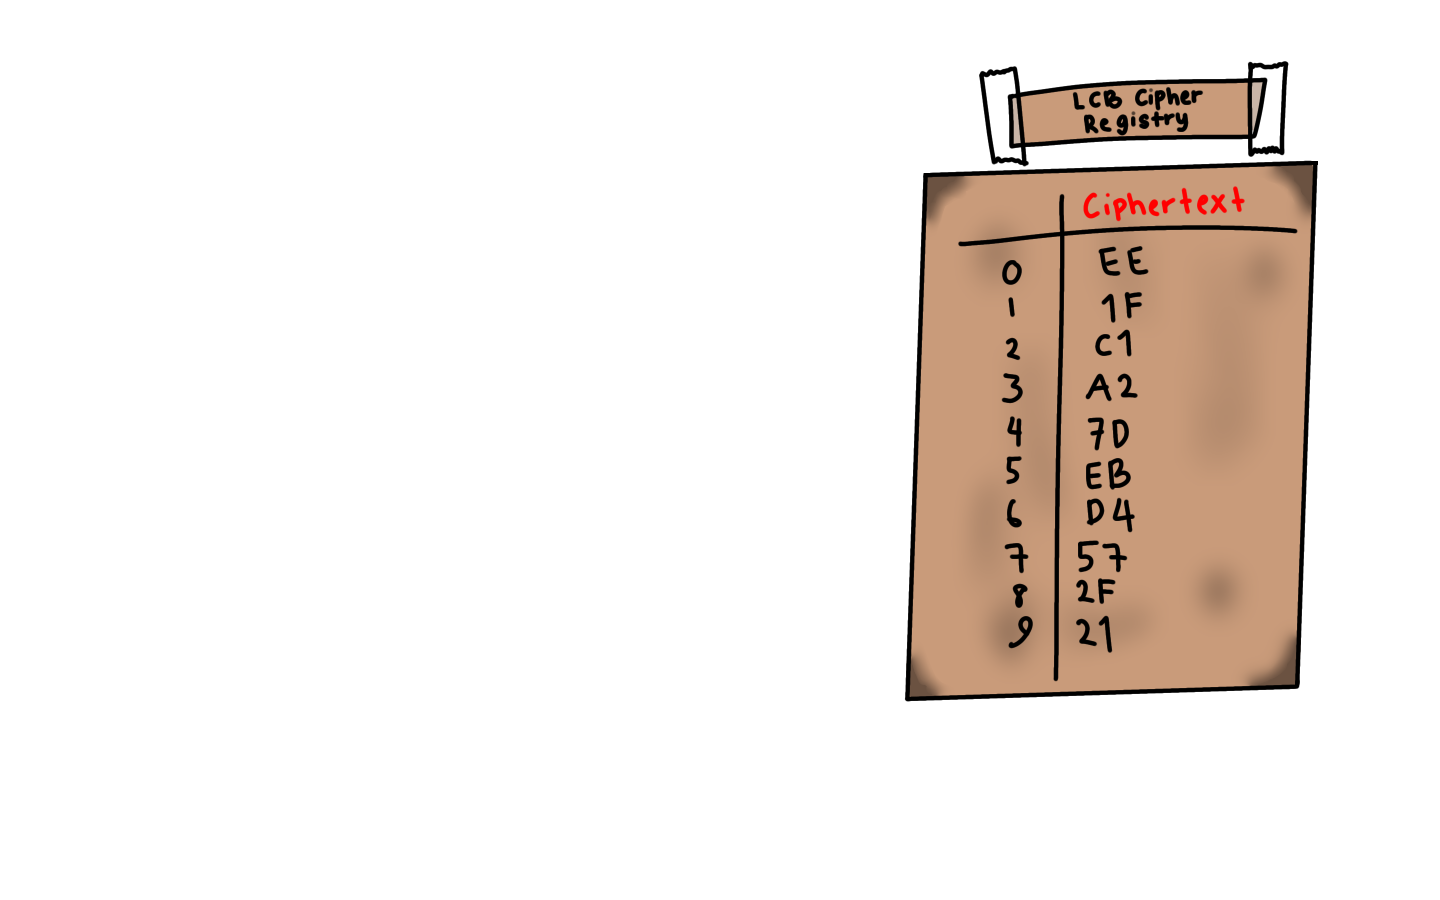 LCB Cipher
Registry
Ciphertext
0 EE
1 1F
2 C1
3 A2
4 7D
5 EB
6 D4
7 57
8 2F
9 21